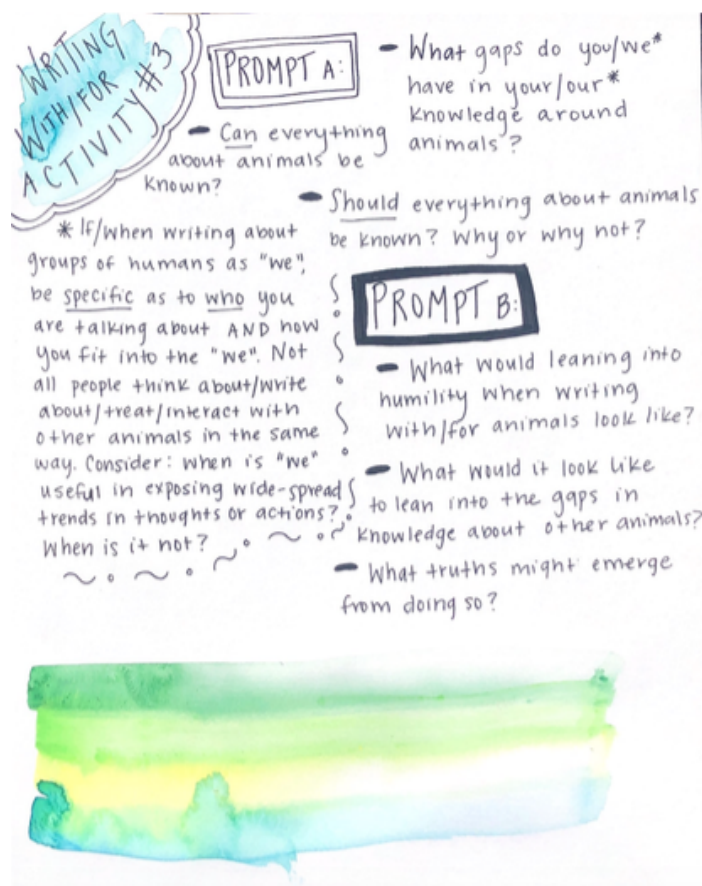 WRITING
WITH/FOR
ACTIVITY #3
PROMPT A:
- Can everything
about animals be
known?
- What gaps do you/we*
have in your/our*
knowledge around
animals?
- Should everything about animals
be known? Why or why not?
* If/when writing about
groups of humans as "we",
be specific as to who you
are talking about AND how
you fit into the "we". Not
all people think about/write
about/treat/interact with
other animals in the same
way. Consider: when is "we"
useful in exposing wide-spread
trends in thoughts or actions?
When is it not?
PROMPT B:
- What would leaning into
humility when writing
with/for animals look like?
- What would it look like
to lean into the gaps in
knowledge about other animals?
- What truths might emerge
from doing so?